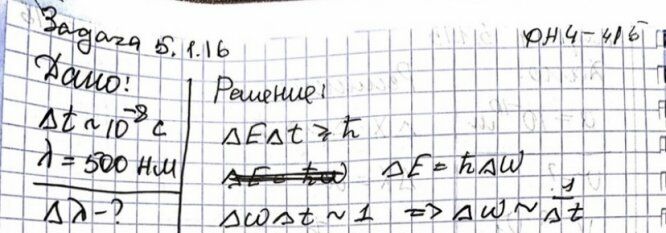 Задача 5.1.16
ФН4-41Б
Дано:
Δt ~ 10⁻⁸ с
λ = 500 нм
Δλ - ?
Решение:
ΔEΔt ≥ ħ
ΔE = ħω ΔE = ħΔω
ΔωΔt ~ 1 => Δω ~ 1/Δt